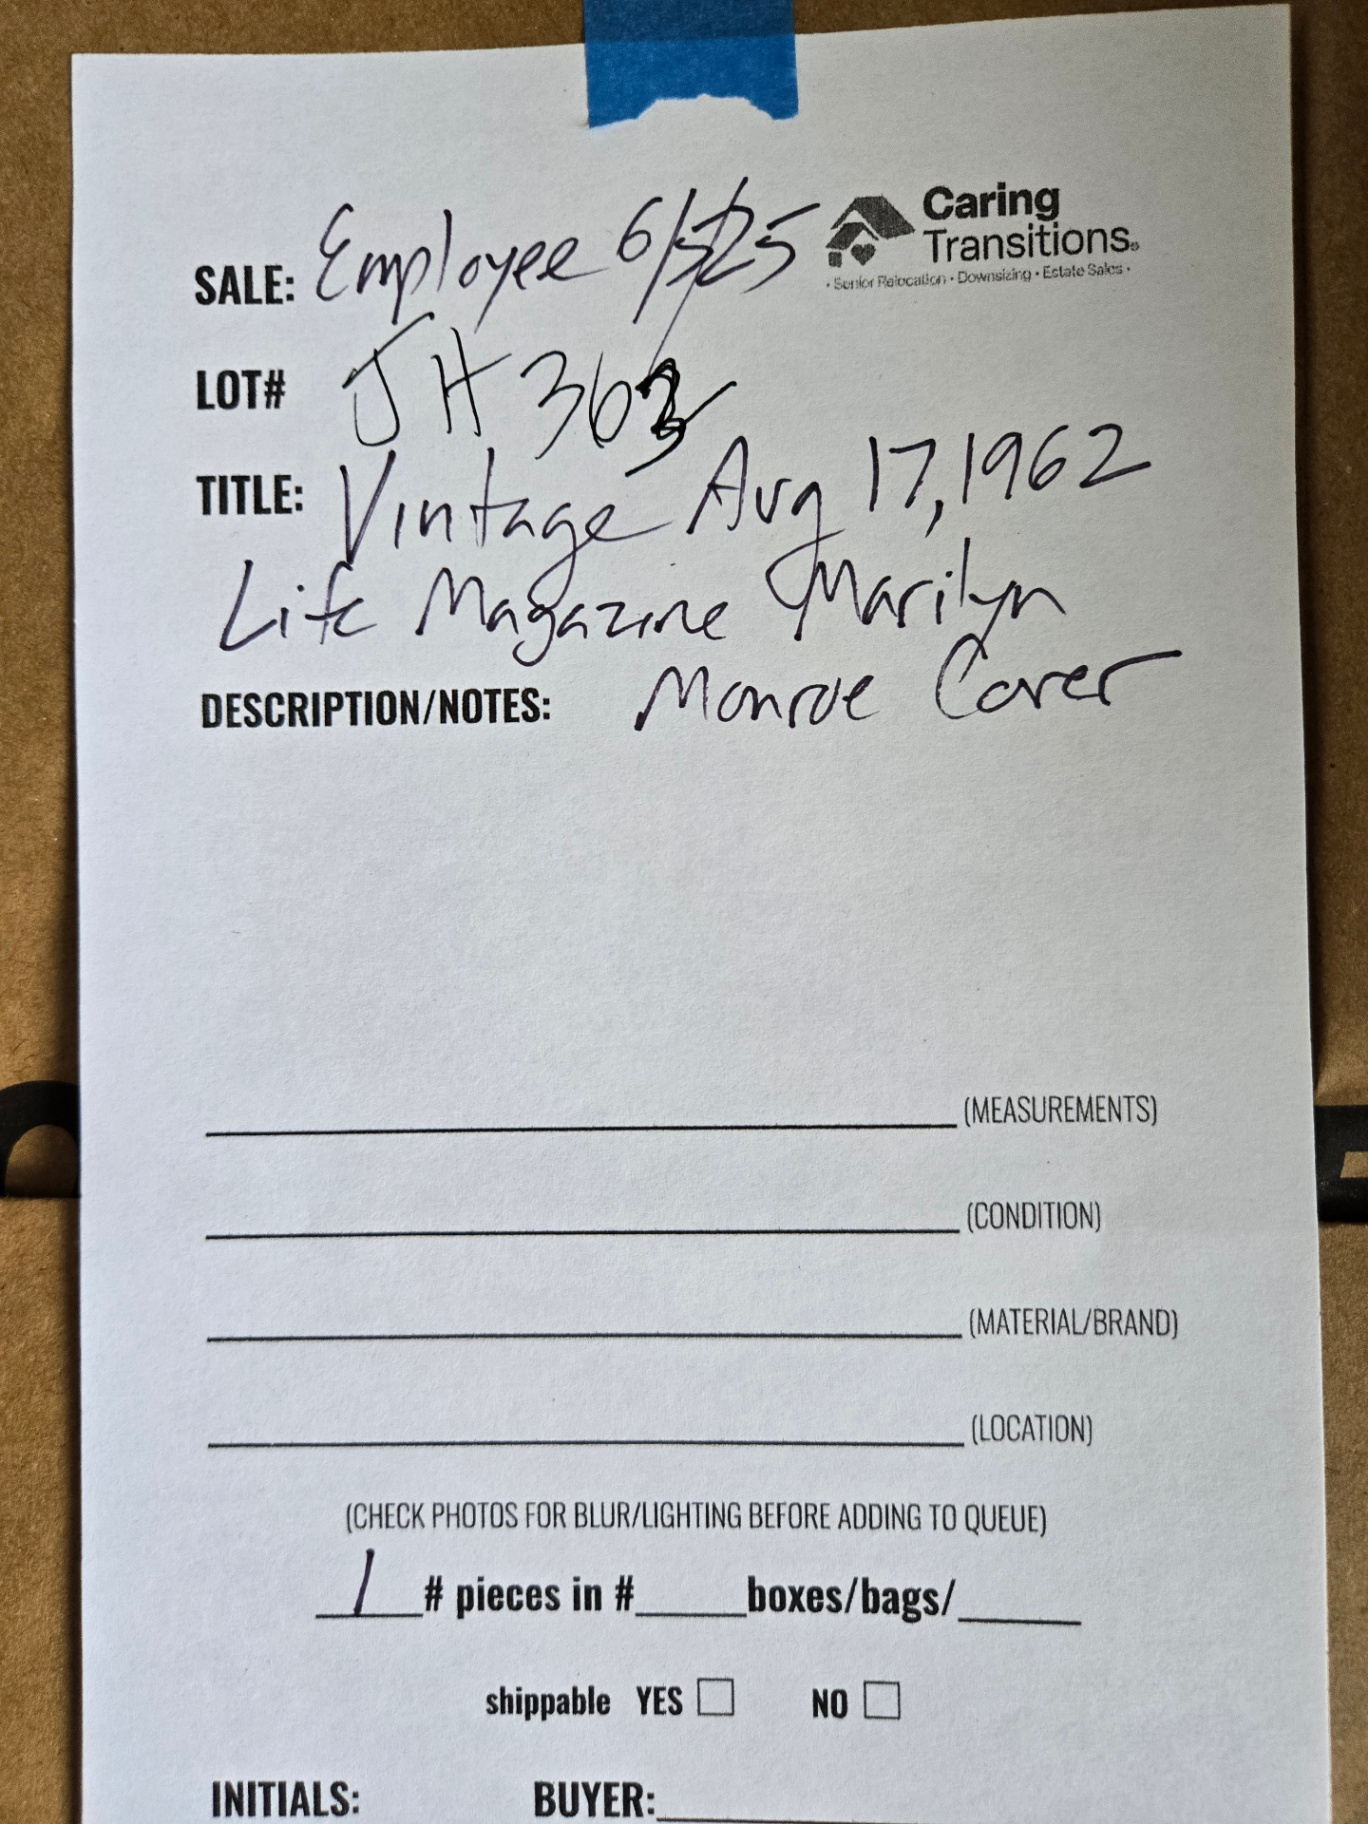 Caring
Transitions®
• Senior Relocation • Downsizing • Estate Sales •
SALE: Employee 6/5/25
LOT# JH 363
TITLE: Vintage Aug 17, 1962
Life Magazine Marilyn
Monroe Cover
DESCRIPTION/NOTES:
(MEASUREMENTS)
(CONDITION)
(MATERIAL/BRAND)
(LOCATION)
(CHECK PHOTOS FOR BLUR/LIGHTING BEFORE ADDING TO QUEUE)
1 # pieces in #_____boxes/bags/_____
shippable YES ☐ NO ☐
INITIALS: BUYER: